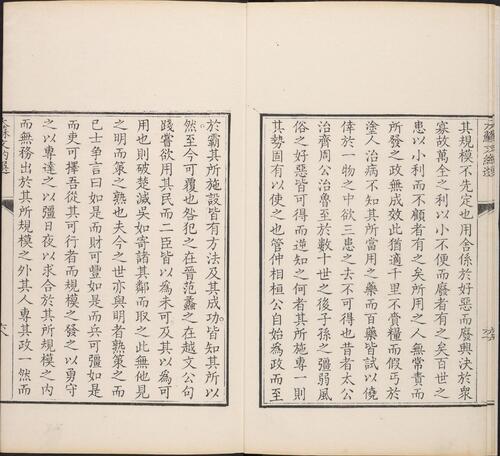 其規模不先定也用舍係於好惡而廢興決於衆
寡故萬全之利以小不便而廢者有之矣百世之
患以小利而不顧者有之矣所用之人無常責而
所發之政無成效此猶適千里不賫糧而假丐於
塗人治病不知其所當用之藥而百藥皆試以僥
倖於一物之中欲三患之去不可得也昔者太公
治齊周公治魯至於數十世之後子孫之彊弱風
俗之好惡皆可得而逆知之何者其所施專一則
其勢固有以使之也管仲相桓公自始為政而至
於霸其所施設皆有方法及其成功皆知其所以
然至今可覆也咎犯之在晉范蠡之在越文公句
踐嘗欲用其民而二臣皆以為未可及其以為可
用也則破楚滅吳如寄諸其鄰而取之此無他見
之明而策之熟也夫今之世亦與明者熟策之而
已士争言曰如是而財可豐如是而兵可彊如是
而吏可擇吾從其可行者而規模之發之以勇守
之以專達之以彊日夜以求合於其所規模之内
而無務出於其所規模之外其人專其政一然而